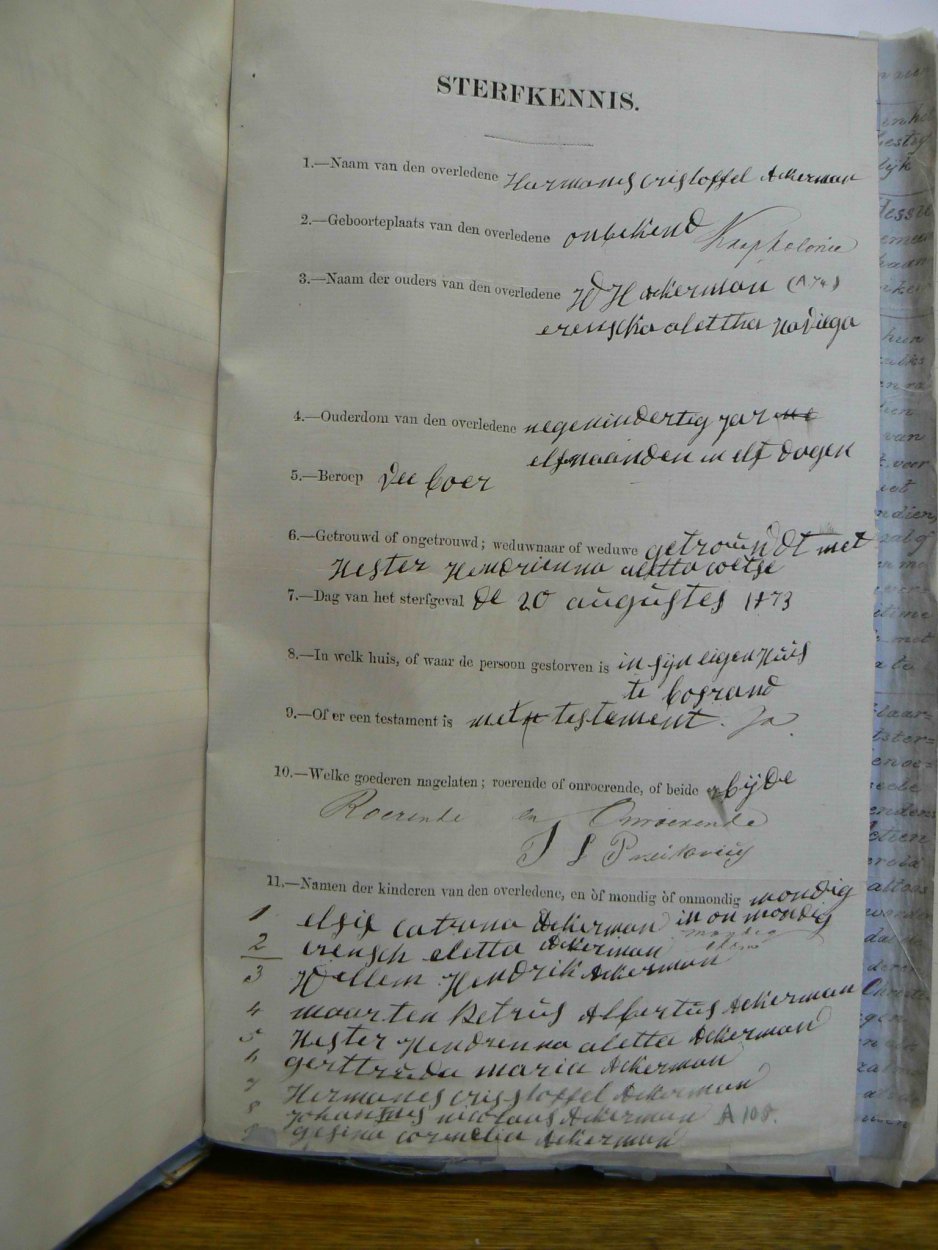 STERFKENNIS.
1.—Naam van den overledene Hermanes cristoffel Ackerman
2.—Geboorteplaats van den overledene onbekend Kaapkolonie
3.—Naam der ouders van den overledene W H Ackerman
erenscka alettha
4.—Ouderdom van den overledene negenindertig jar
elf maanden in elf dagen
5.—Beroep vee boer
6.—Getrouwd of ongetrouwd; weduwnaar of weduwe getroundt met
Hester Hendrienna aletta coetse
7.—Dag van het sterfgeval de 20 augustes 1873
8.—In welk huis, of waar de persoon gestorven is in syn eigen Huis
te bosrand
9.—Of er een testament is met testement. Ja
10.—Welke goederen nagelaten; roerende of onroerende, of beide bijde
Roerende en Onroerende
11.—Namen der kinderen van den overledene, en òf mondig òf onmondig mondig
1 elsie catrona Ackerman in on mondig
2 erensch eletta Ackerman mondig
3 Willem Hendrik Ackerman
4 maarten Petrus Albertus Ackerman
5 Hester Hendrenna aletta Ackerman
6 gerttruda maria Ackerman
7 Hermanes crisstoffel Ackerman
8 johannes nicolaas Ackerman A 108.
9 gesina cornelia Ackerman